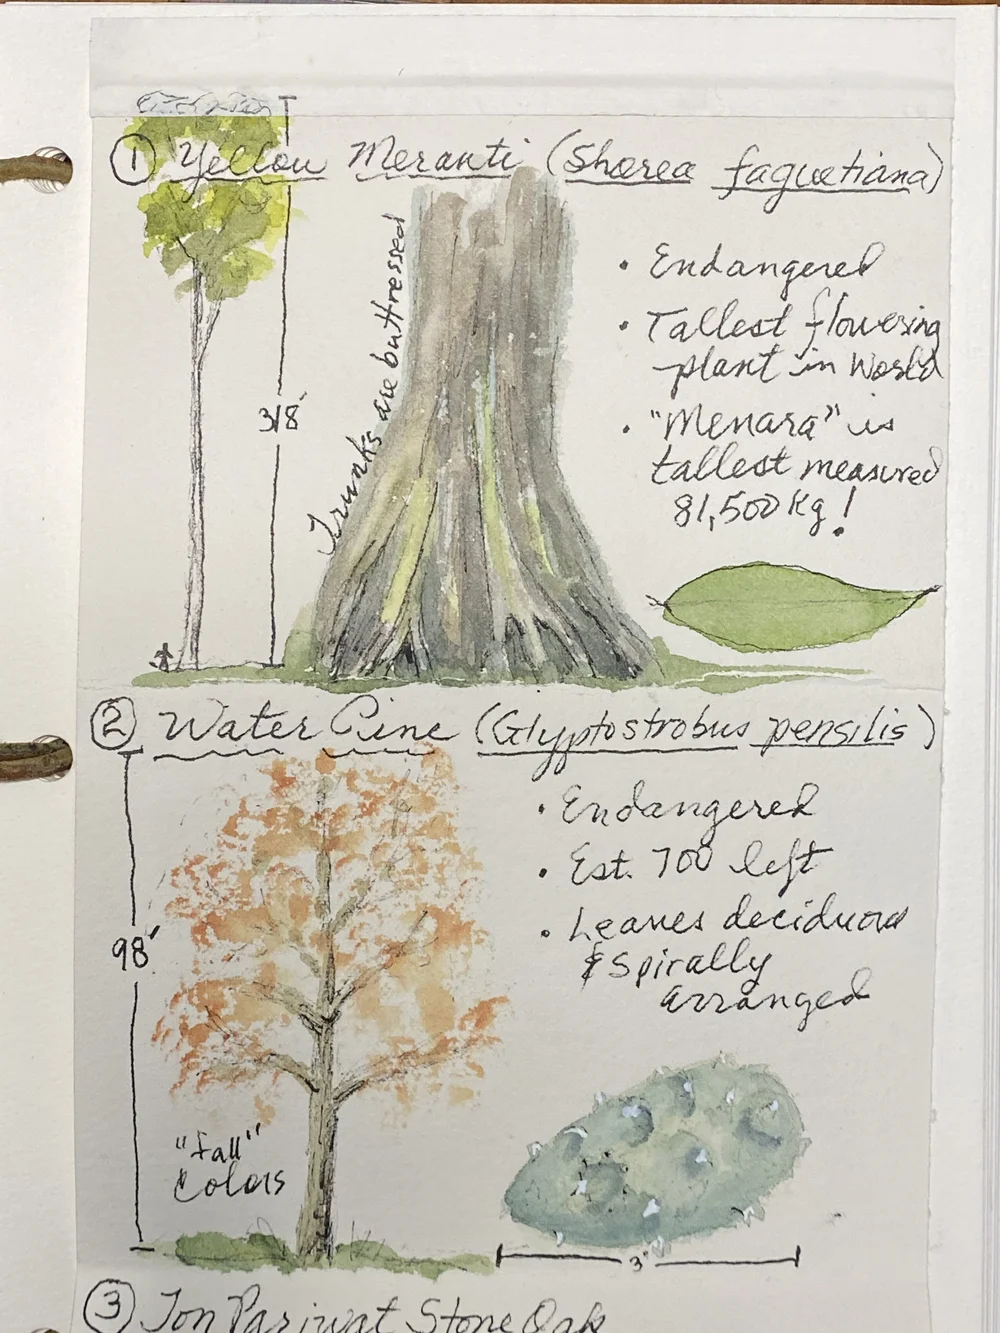 ① Yellow Meranti (Shorea faguetiana)
Trunks are buttressed
318'
• Endangered
• Tallest flowering
plant in World
• "Menara" is
tallest measured
81,500 Kg!
② Water Pine (Glyptostrobus pensilis)
98'
• Endangered
• Est. 700 left
• Leaves deciduous
& spirally
arranged
"Fall"
Colors
3"
③ Ton Pariwat Stone Oak